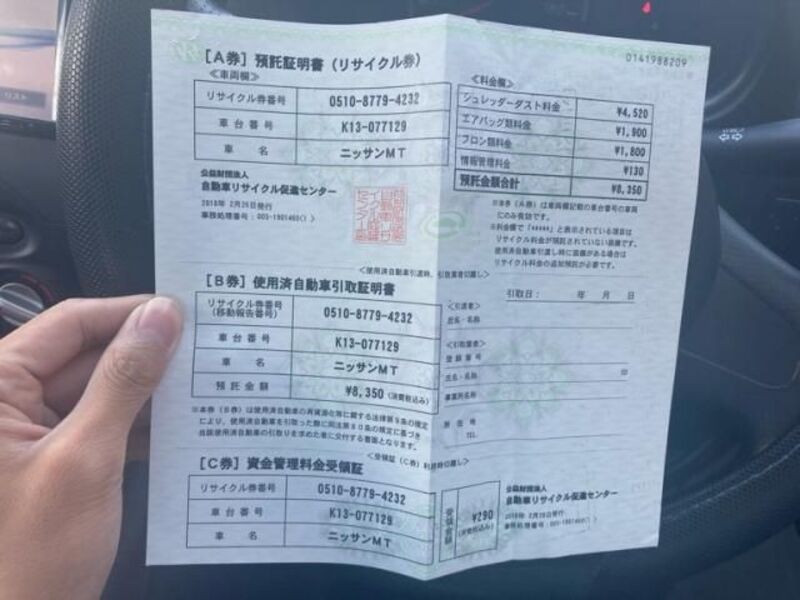 0141988209
[A券] 預託証明書 (リサイクル券)
≪車両欄≫
リサイクル券番号 0510-8779-4232
車台番号 K13-077129
車名 ニッサンMT
公益財団法人
自動車リサイクル促進センター
2018年 2月26日発行
≪料金欄≫
シュレッダーダスト料金 ¥4,520
エアバッグ類料金 ¥1,900
フロン類料金 ¥1,800
情報管理料金 ¥130
預託金額合計 ¥8,350
※本券(A券)は車両欄記載の車台番号の車両
にのみ有効です。
※料金欄で「*****」と表示されている項目は
リサイクル料金が預託されていない装備です。
使用済自動車引渡し時に装備がある場合は
リサイクル料金の追加預託が必要です。
<使用済自動車引渡時、引取業者切離し>
[B券] 使用済自動車引取証明書
リサイクル券番号
(移動報告番号) 0510-8779-4232
車台番号 K13-077129
車名 ニッサンMT
預託金額 ¥8,350 (消費税込み)
※本券(B券)は使用済自動車の再資源化等に関する法律第9条の規定
により、使用済自動車を引取った際に同法第80条の規定に基づき
当該使用済自動車の引取りを求めた者に交付する書面となります。
引取日: 年 月 日
<引渡者>
氏名・名称
<引取業者>
登録番号
氏名・名称
事業所名称
所在地
TEL.
<受領証(C券)利用時切離し>
[C券] 資金管理料金受領証
リサイクル券番号 0510-8779-4232
車台番号 K13-077129
車名 ニッサンMT
受領金額 ¥290
(消費税込み)
公益財団法人
自動車リサイクル促進センター
2018年 2月26日発行